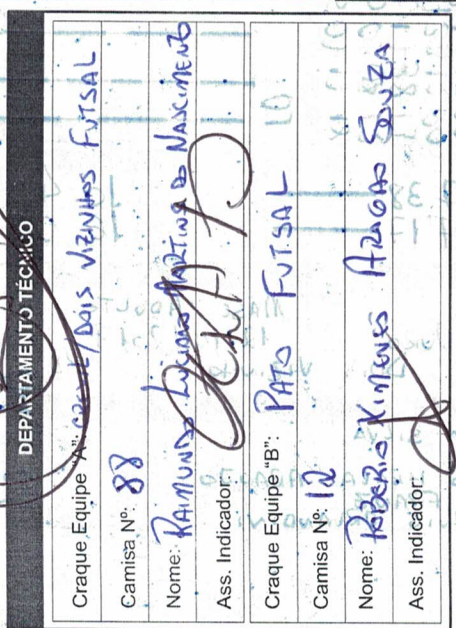 DEPARTAMENTO TÉCNICO
Craque Equipe "A": /DOIS VIZINHOS FUTSAL
Camisa Nº: 88
Nome: RAIMUNDO MARTINS DO NASCIMENTO
Ass. Indicador:
Craque Equipe "B": PATO FUTSAL
Camisa Nº: 12
Nome: ROBÉRIO XIMENES ARAGÃO SOUZA
Ass. Indicador: